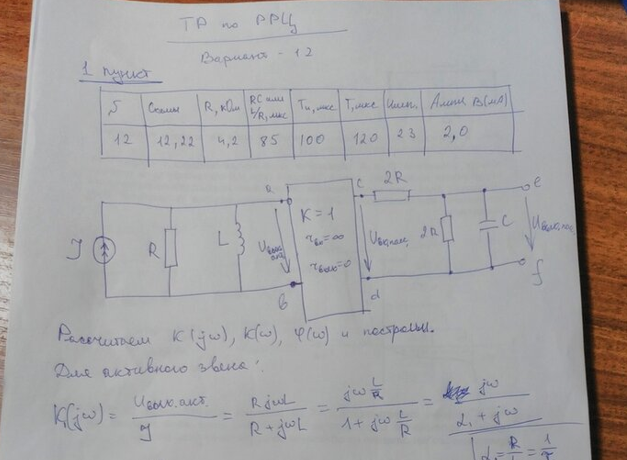 ТР по РРЦ
Вариант - 12
1 пункт
№ Схемы R, кОм RC или L/R, мкс Tи, мкс T, мкс Имп. Ампл В(мА)
12 12,22 4,2 85 100 120 23 2,0
a c 2R e
J R L Uвых акт K = 1 rвх = ∞ rвых = 0 Uвх.пас 2R C Uвых.пас
b d f
Рассчитаем K(jω), K(ω), φ(ω) и построим.
Для активного звена:
K₁(jω) = Uвых.акт. / J = RjωL / (R + jωL) = jω L/R / (1 + jω L/R) = jω / (α₁ + jω)
α₁ = R/L = 1/τ